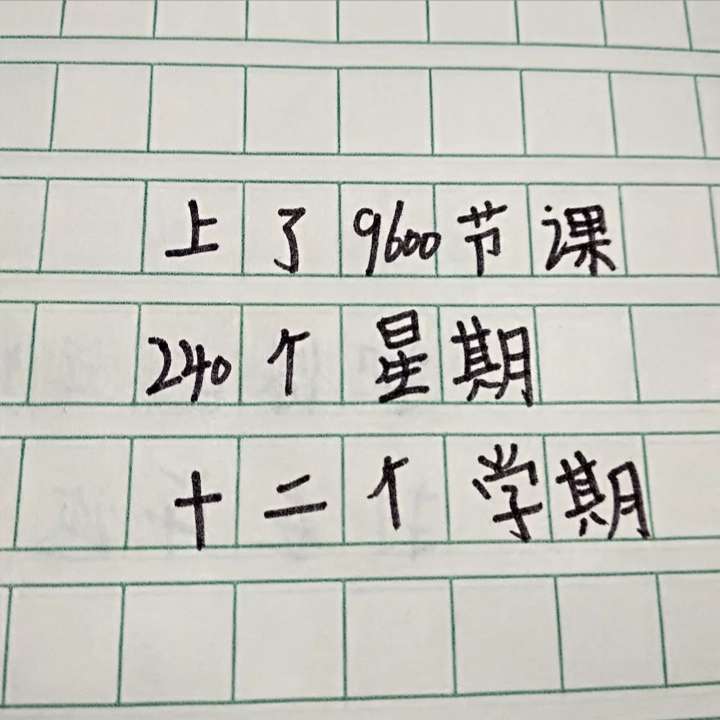 上了9600节课
240个星期
十二个学期